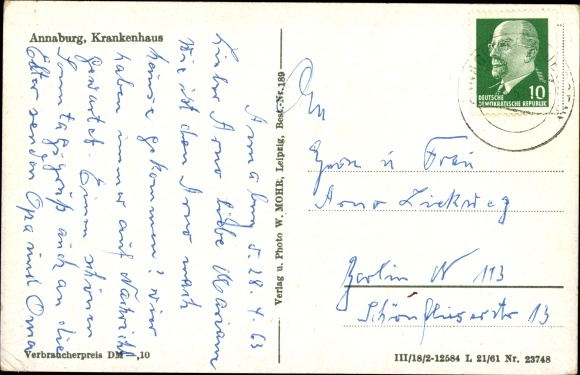 Annaburg, Krankenhaus
Annaburg d. 28.4.63
Lieber Arno liebe Mariann
Wie ist denn Arno nach
hause gekommen? wir
haben immer auf Nachricht
gewartet. Einen schönen
Sonntagsgruß auch an die
Elter senden Opa und Oma
Verbraucherpreis DM -,10
Verlag u. Photo W. MOHR, Leipzig, Best.-Nr. 189
10
DEUTSCHE
DEMOKRATISCHE REPUBLIK
An
Herrn u Frau
Arno
Berlin N 113
Schönfliesserstr 13
III/18/2-12584 L 21/61 Nr. 23748